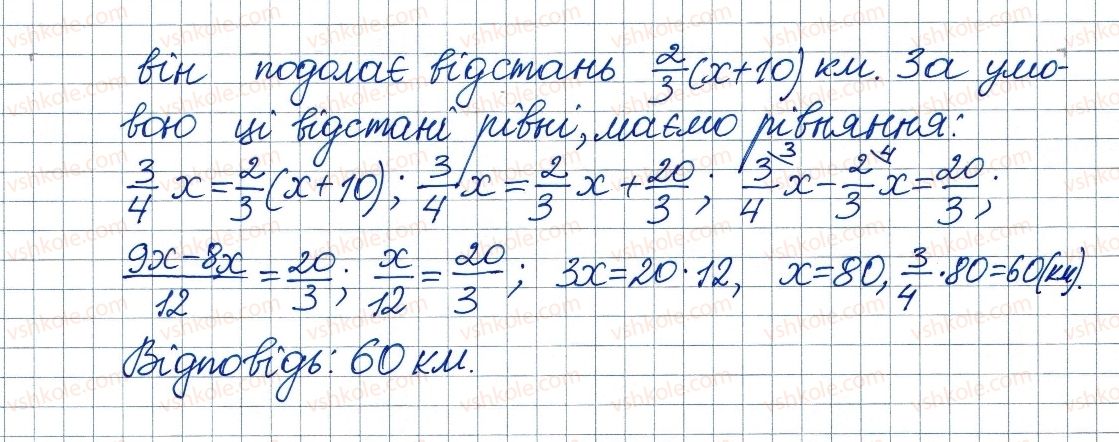 він подолає відстань 2/3 (x+10) км. За умо-
вою ці відстані рівні, маємо рівняння:
3/4 x = 2/3 (x+10); 3/4 x = 2/3 x + 20/3; 3/4 \3 x - 2/3 \4 x = 20/3;
9x-8x/12 = 20/3; x/12 = 20/3; 3x=20·12, x=80, 3/4·80=60(км).
Відповідь: 60 км.